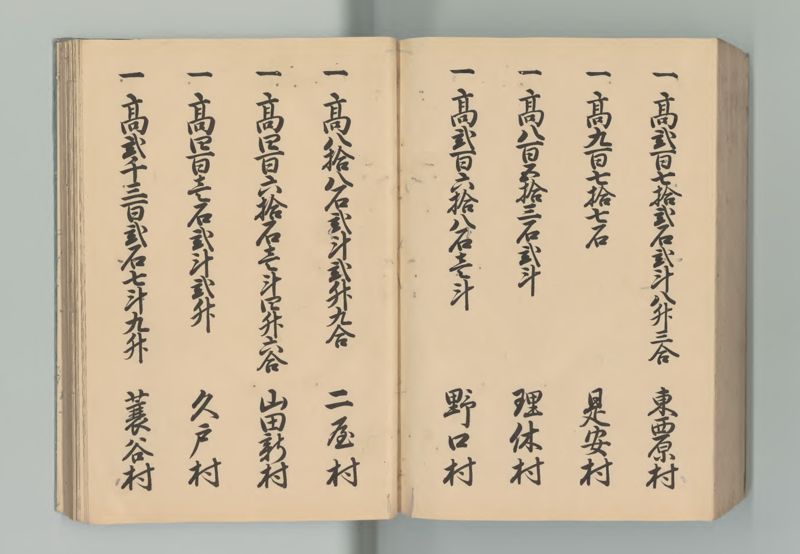 一 髙弐百七拾弐石弐斗八升三合 東西原村
一 髙九百七拾七石 是安村
一 髙八百五拾三石弐斗 理休村
一 髙弐百六拾八石壱斗 野口村
一 髙八拾八石弐斗弐升九合 二屋村
一 髙四百六拾石壱斗四升六合 山田新村
一 髙四百壱石弐斗弐升 久戸村
一 髙弐千三百弐石七斗九升 蓑谷村